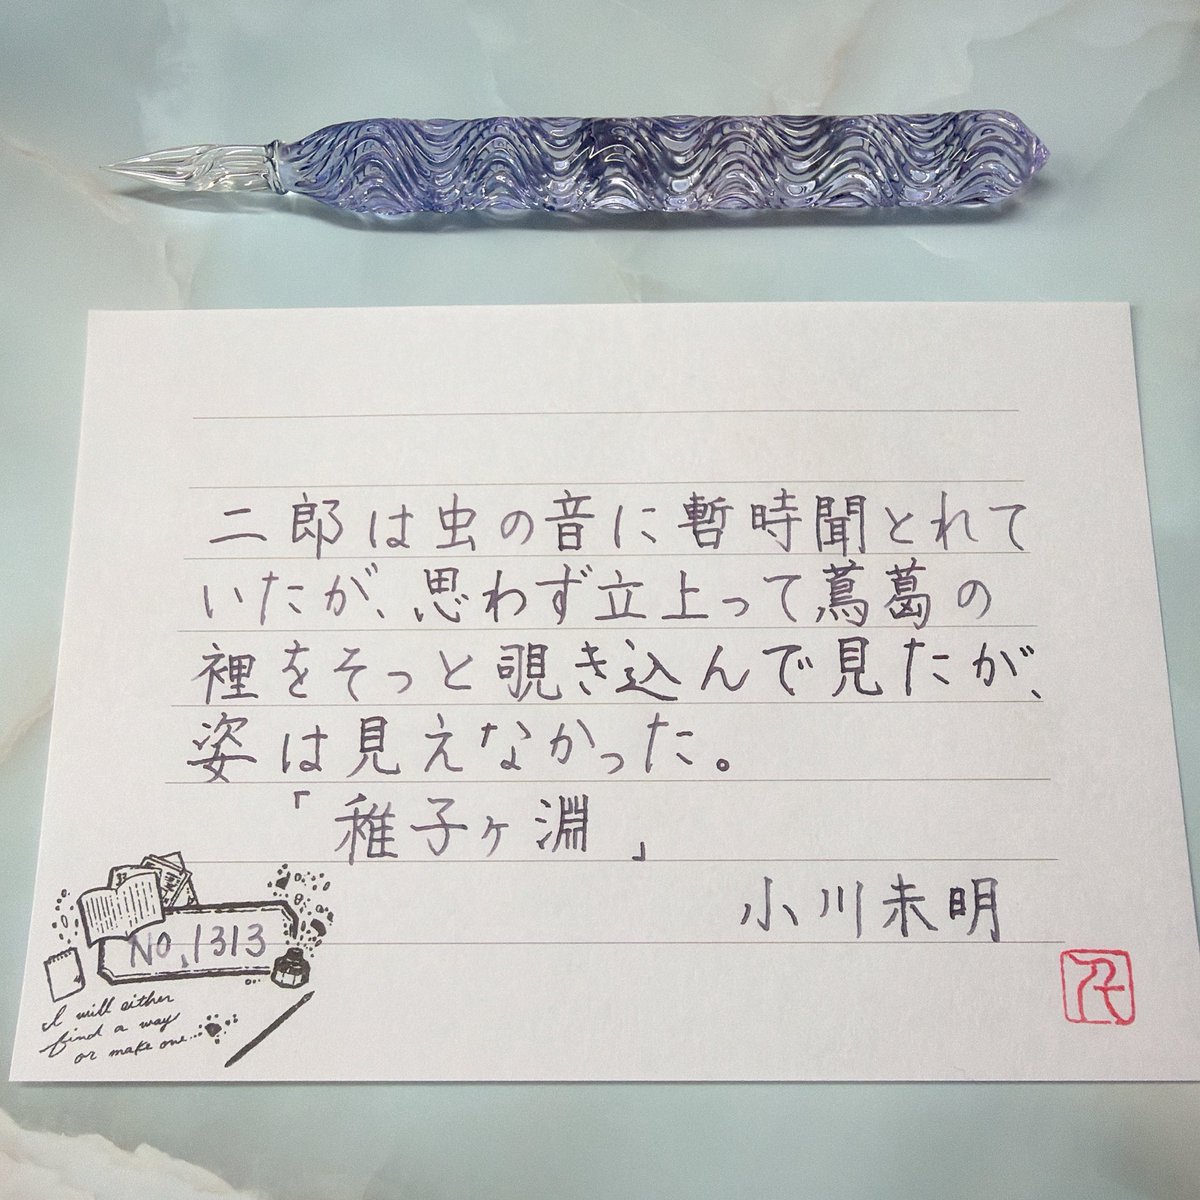 二郎は虫の音に暫時聞とれて
いたが、思わず立上って蔦葛の
裡をそっと覗き込んで見たが、
姿は見えなかった。
「稚子ヶ淵」
小川未明
No.1313
I will either
find a way
or make one...